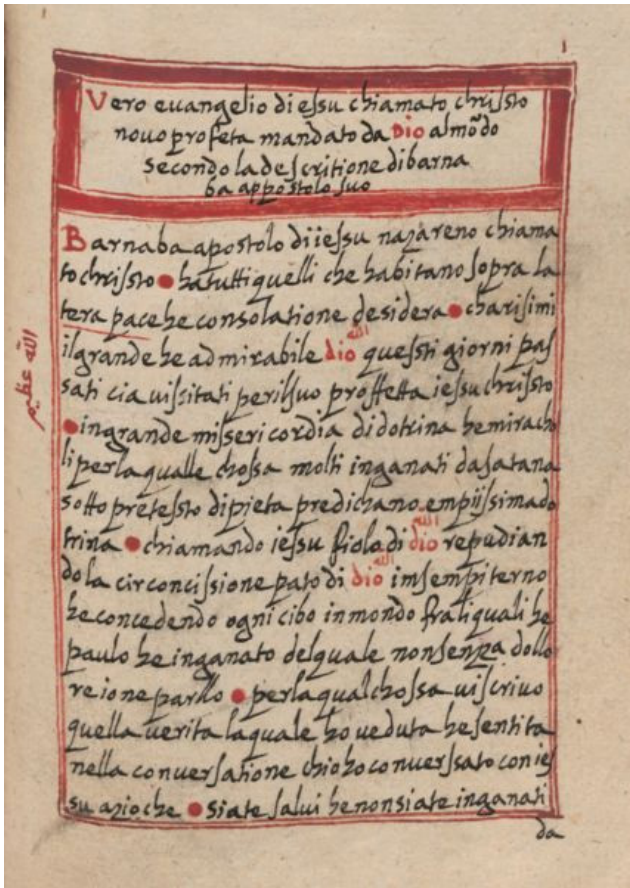 1
Vero euangelio di essu chiamato chrissto
nouo profeta mandato da DIO al mõdo
secondo la descritione di barna
ba appostolo suo
Barnaba apostolo di iessu nazareno chiama
to chrissto ● ha tutti quelli che habitano sopra la
tera pace he consolatione desidera ● charisimi
الله
il grande he admirabile dio quessti giorni pas
الله عظيم
sati cia uissitati per il suo proffetta iessu chrissto
● in grande misericordia di dotrina he mirach
li per la qualle chossa molti inganati da satana
sotto pretessto di pieta predichano empiissima do
الله
trina ● chiamando iessu fiolo di dio repudian
الله
do la circoncissione pato di dio in sempiterno
he concedendo ogni cibo inmondo fra li quali he
paulo he inganato del quale non senza dollo
re ione parllo ● per la qual chossa ui scriuo
quella uerita la quale ho ueduta he sentita
nella conuersatione chio ho conuerssato con ies
su azio che ● siate salui he non siate inganati
da